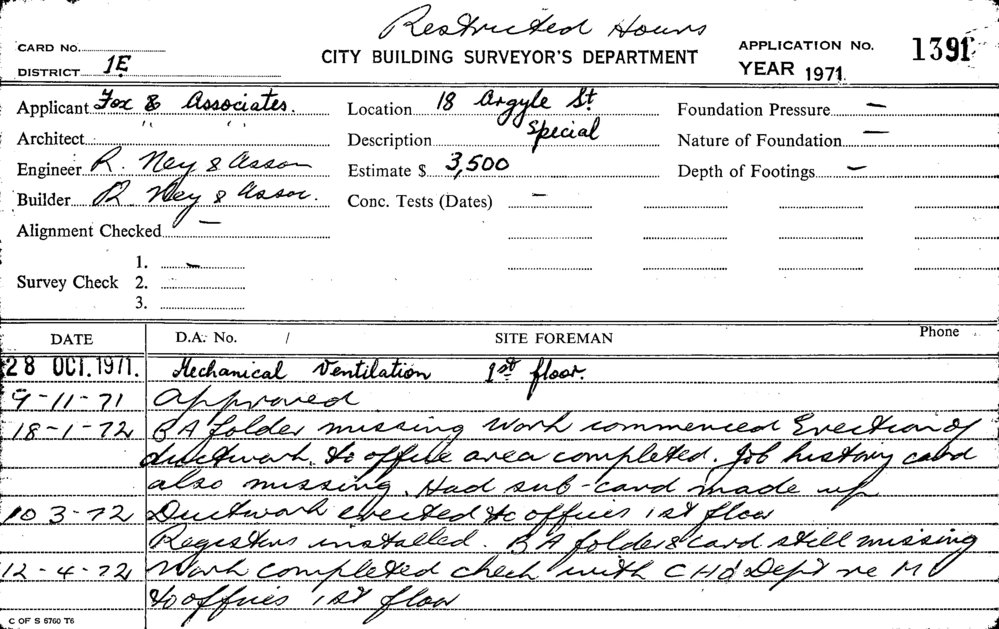 Restricted Hours
CARD No.
CITY BUILDING SURVEYOR'S DEPARTMENT
APPLICATION No. 1391
DISTRICT 1E
YEAR 1971.
Applicant Fox & Associates.
Location 18 Argyle St.
Foundation Pressure —
Architect " "
Description Special
Nature of Foundation —
Engineer R. Ney & Asson
Estimate $ 3,500
Depth of Footings —
Builder R. Ney & Assoc.
Conc. Tests (Dates) —
Alignment Checked —
1. —
Survey Check 2.
3.
DATE D.A. No. / SITE FOREMAN Phone
28 OCT. 1971. Mechanical Ventilation 1st floor.
9-11-71 Approved
18-1-72 BA folder missing Work commenced Erection of
ductwork to office area completed. Job history card
also missing. Had sub-card made up
10 3-72 Ductwork erected to offices 1st floor
Registers installed. BA folder & card still missing
12-4-72 Work completed check with CHO Dept re M V
to offices 1st floor
C OF S 5760 T6